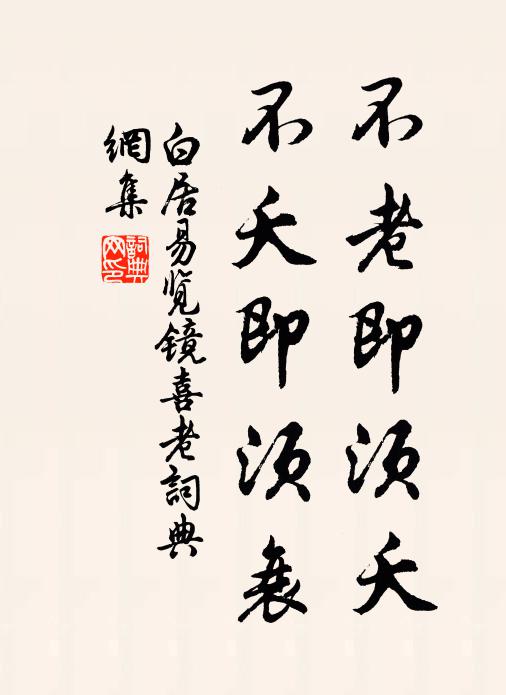 不老即须夭
不夭即须衰
白居易览镜喜老詞典
網集
詞典
网印